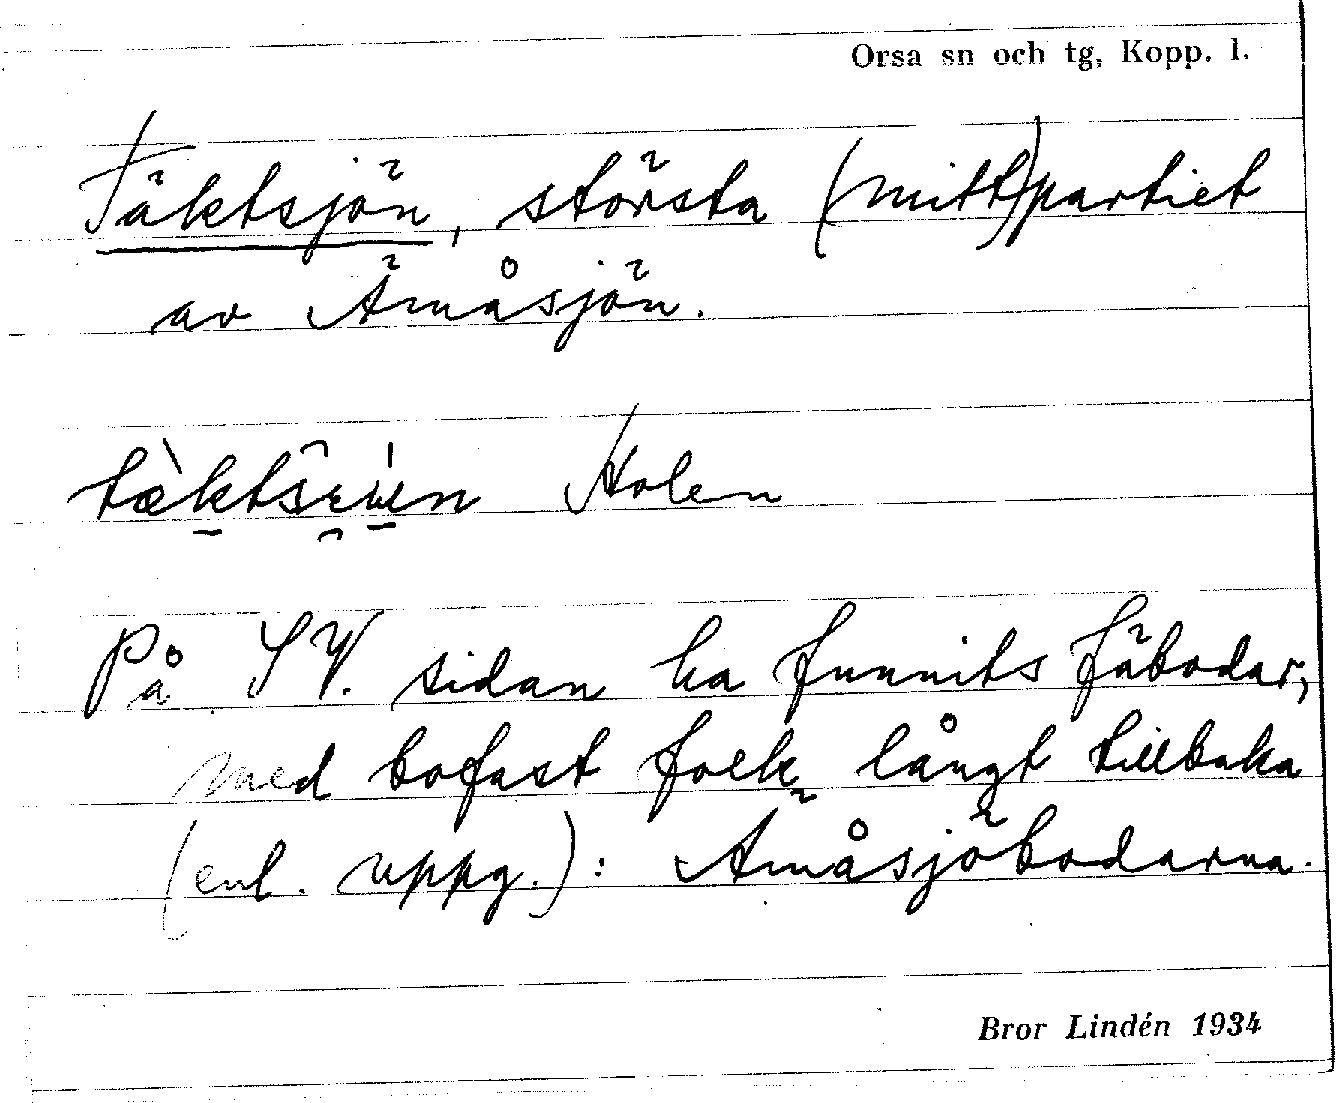 Orsa sn och tg, Kopp. l.
Täktsjön, största (mitt)partiet
av Ämåsjön.
Holen
På SV. sidan ha funnits fäbodar,
med bofast folk långt tillbaka
(enl. uppg.): Ämåsjöbodarna.
Bror Lindén 1934